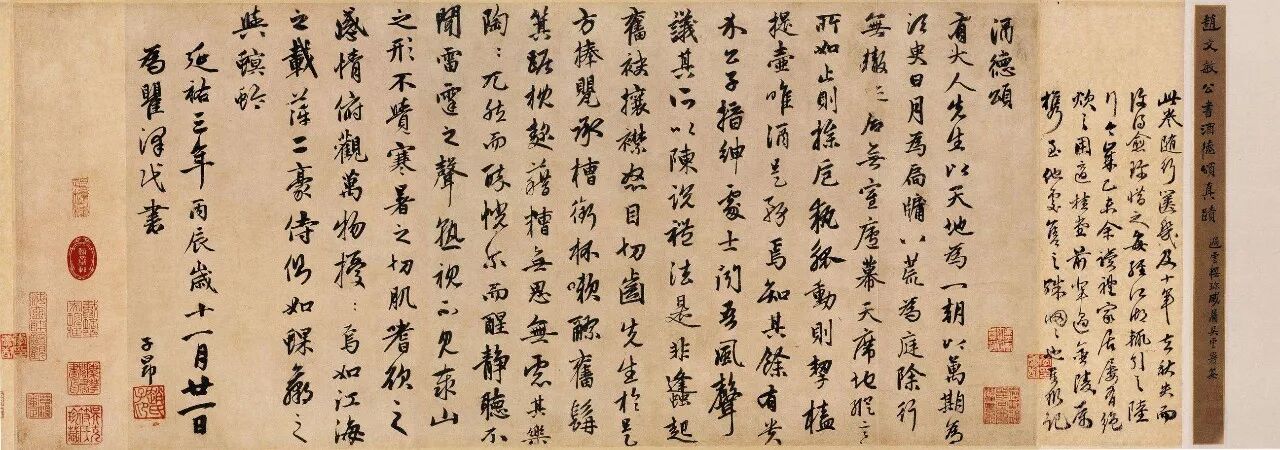 趙文敏公書酒德頌真蹟
過雲樓珍藏
此卷隨行篋幾及十年去秋失而
復得愈珍惜之每經江湖輒引之陸
己未余讀禮家居屢有絕
酒德頌
有大人先生以天地為一朝以萬期為
須臾日月為扃牖八荒為庭除行
無轍迹居無室廬幕天席地縱意
所如止則操卮執觚動則挈榼
提壺唯酒是務焉知其餘有貴
介公子搢紳處士聞吾風聲
議其所以陳說禮法是非蠭起
奮袂攘襟怒目切齒先生於是
方捧甖承槽銜杯漱醪奮髯
箕踞枕麴藉糟無思無慮其樂
陶〻兀然而醉恍尔而醒靜聽不
聞雷霆之聲熟視不見泰山
之形不覺寒暑之切肌嗜欲之
感情俯觀萬物擾〻焉如江海
之載萍二豪侍側如蜾蠃之
與螟蛉
延祐三年丙辰歲十一月廿一日
為瞿澤民書
子昂